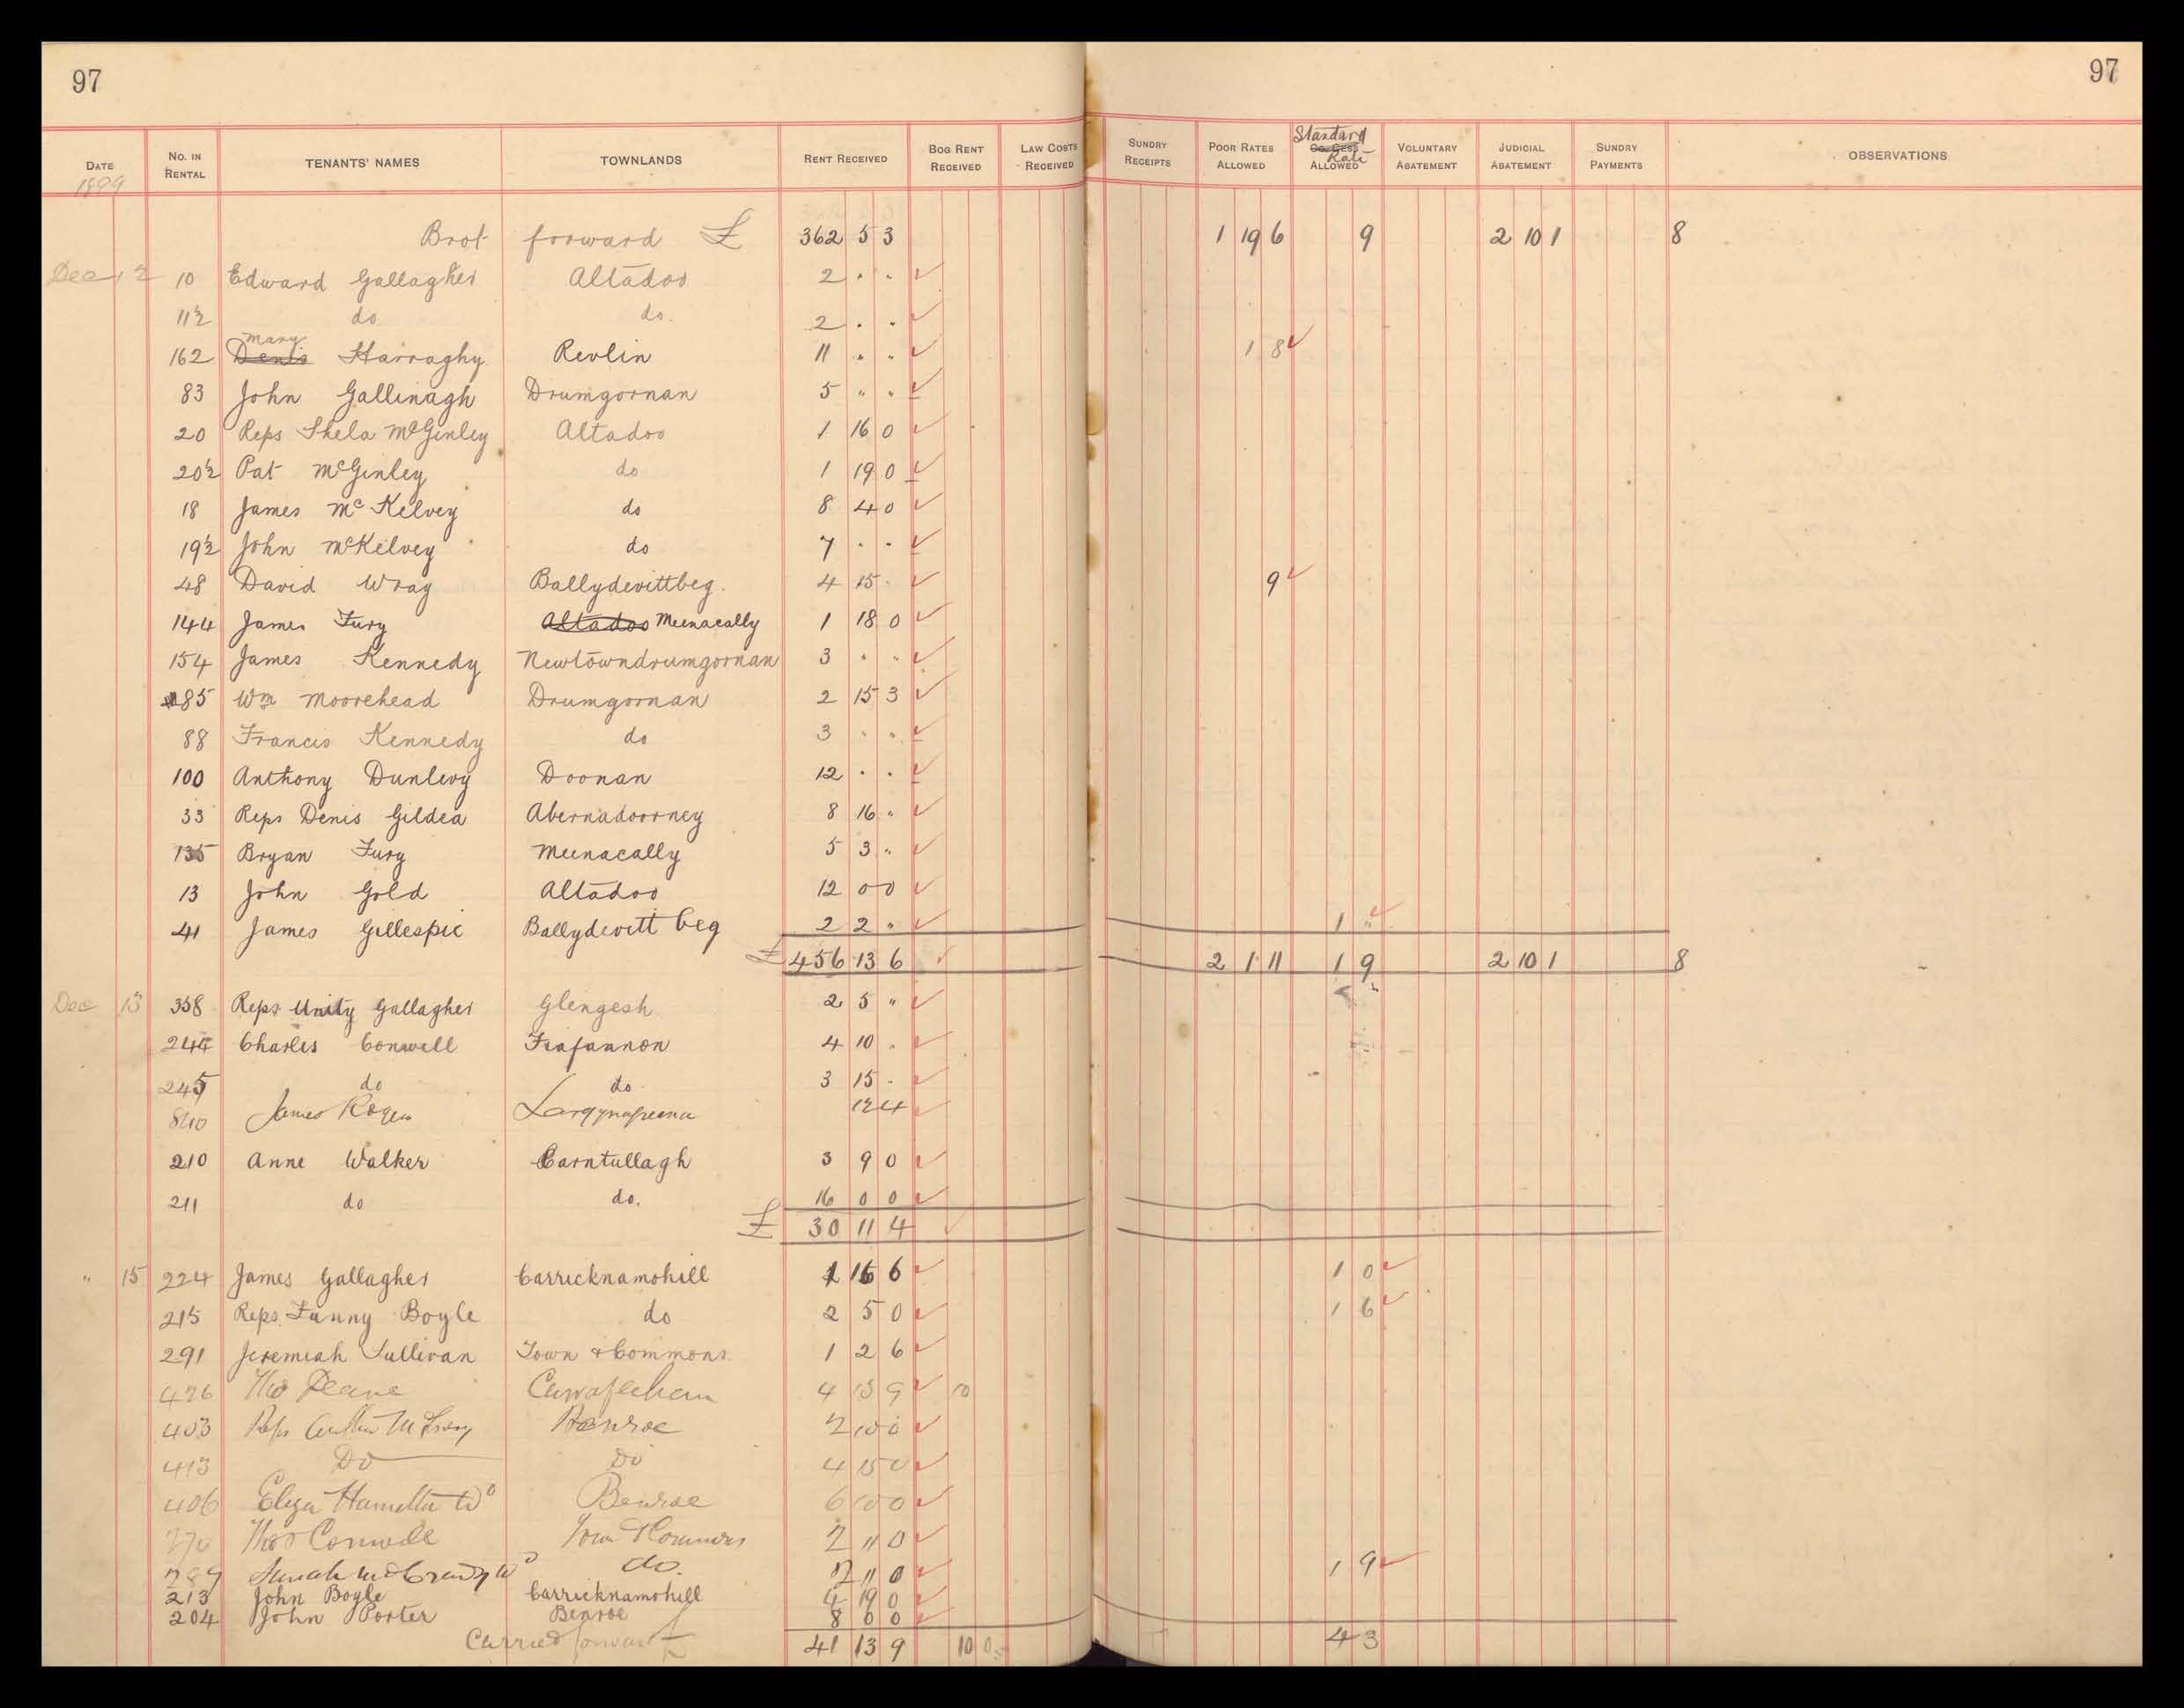 97 97
DATE 1899 NO. IN RENTAL TENANTS' NAMES TOWNLANDS RENT RECEIVED BOG RENT RECEIVED LAW COSTS RECEIVED SUNDRY RECEIPTS POOR RATES ALLOWED Standard Co. Cess Rate ALLOWED VOLUNTARY ABATEMENT JUDICIAL ABATEMENT SUNDRY PAYMENTS OBSERVATIONS
Brot forward £ 362 5 3 1 19 6 9 2 10 1 8
Dec 12 10 Edward Gallagher Altadoo 2 " "
11½ do do. 2 . .
162 Denis Mary Harraghy Revlin 11 " " 1 8
83 John Gallinagh Drumgornan 5 " "
20 Reps Shela McGinley Altadoo 1 16 0
20½ Pat McGinley do 1 19 0
18 James McKelvey do 8 4 0
19½ John McKelvey do 7 . .
48 David Wray Ballydevittbeg. 4 15 . 9
144 James Fury Altadoo Meenacally 1 18 0
154 James Kennedy Newtowndrumgornan 3 " "
85 Wm Moorehead Drumgornan 2 15 3
88 Francis Kennedy do 3 " "
100 Anthony Dunlevy Doonan 12 . .
33 Reps Denis Gildea Abernadoorney 8 16 "
135 Bryan Fury Meenacally 5 3 "
13 John Gold Altadoo 12 0 0
41 James Gillespie Ballydevitt beg 2 2 " 1 "
£ 456 13 6 2 1 11 1 9 2 10 1 8
Dec 13 358 Reps Unity Gallagher Glengesh 2 5 "
244 Charles Conwell Fiafannon 4 10 .
245 do do 3 15 .
840 James Rogers 12 4
210 Anne Walker Carntullagh 3 9 0
211 do do. 16 0 0
£ 30 11 4
" 15 224 James Gallagher Carricknamohill 1 16 6 1 0
215 Reps. Fanny Boyle do 2 5 0 1 6
291 Jeremiah Sullivan Town & Commons 1 2 6
426 Thos Deane 4 13 9 10
403 Reps Benroe 2 10 0
413 Do Do 4 15 0
406 Eliza Hamilton Wo Benroe 6 10 0
270 Thos Conwell Town & Commons 2 11 0
289 do. 2 11 0 1 9
213 John Boyle Carricknamohill 4 19 0
204 John Porter Benroe 8 0 0
Carried forward £ 41 13 9 10 0 4 3